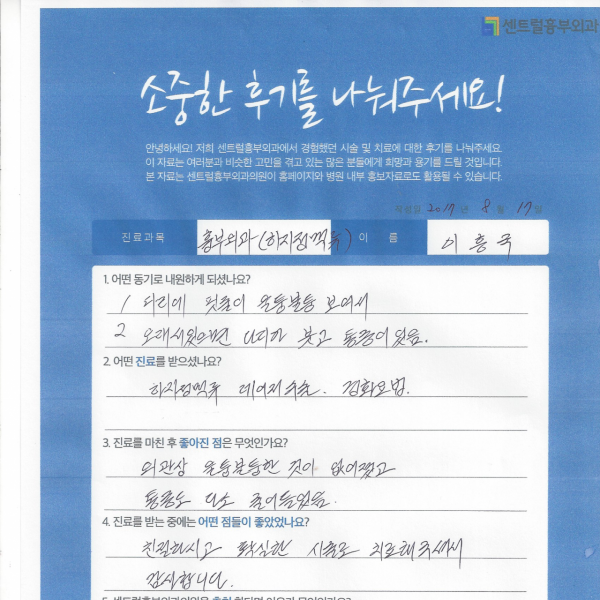 센트럴흉부외과
소중한 후기를 나눠주세요!
안녕하세요! 저희 센트럴흉부외과에서 경험했던 시술 및 치료에 대한 후기를 나눠주세요.
이 자료는 여러분과 비슷한 고민을 겪고 있는 많은 분들에게 희망과 용기를 드릴 것입니다.
본 자료는 센트럴흉부외과의원이 홈페이지와 병원 내부 홍보자료로도 활용될 수 있습니다.
작성일 2017 년 8 월 17 일
진료과목 흉부외과(하지정맥류) 이 름 이흥국
1. 어떤 동기로 내원하게 되셨나요?
1 다리에 핏줄이 울퉁불퉁 보여서
2 오래서있으면 다리가 붓고 통증이 있음.
2. 어떤 진료를 받으셨나요?
하지정맥류 레이저수술. 경화요법.
3. 진료를 마친 후 좋아진 점은 무엇인가요?
외관상 울퉁불퉁한 것이 없어졌고
통증도 다소 줄어들었음.
4. 진료를 받는 중에는 어떤 점들이 좋았었나요?
친절하시고 확실한 시술로 치료해주셔서
감사합니다.